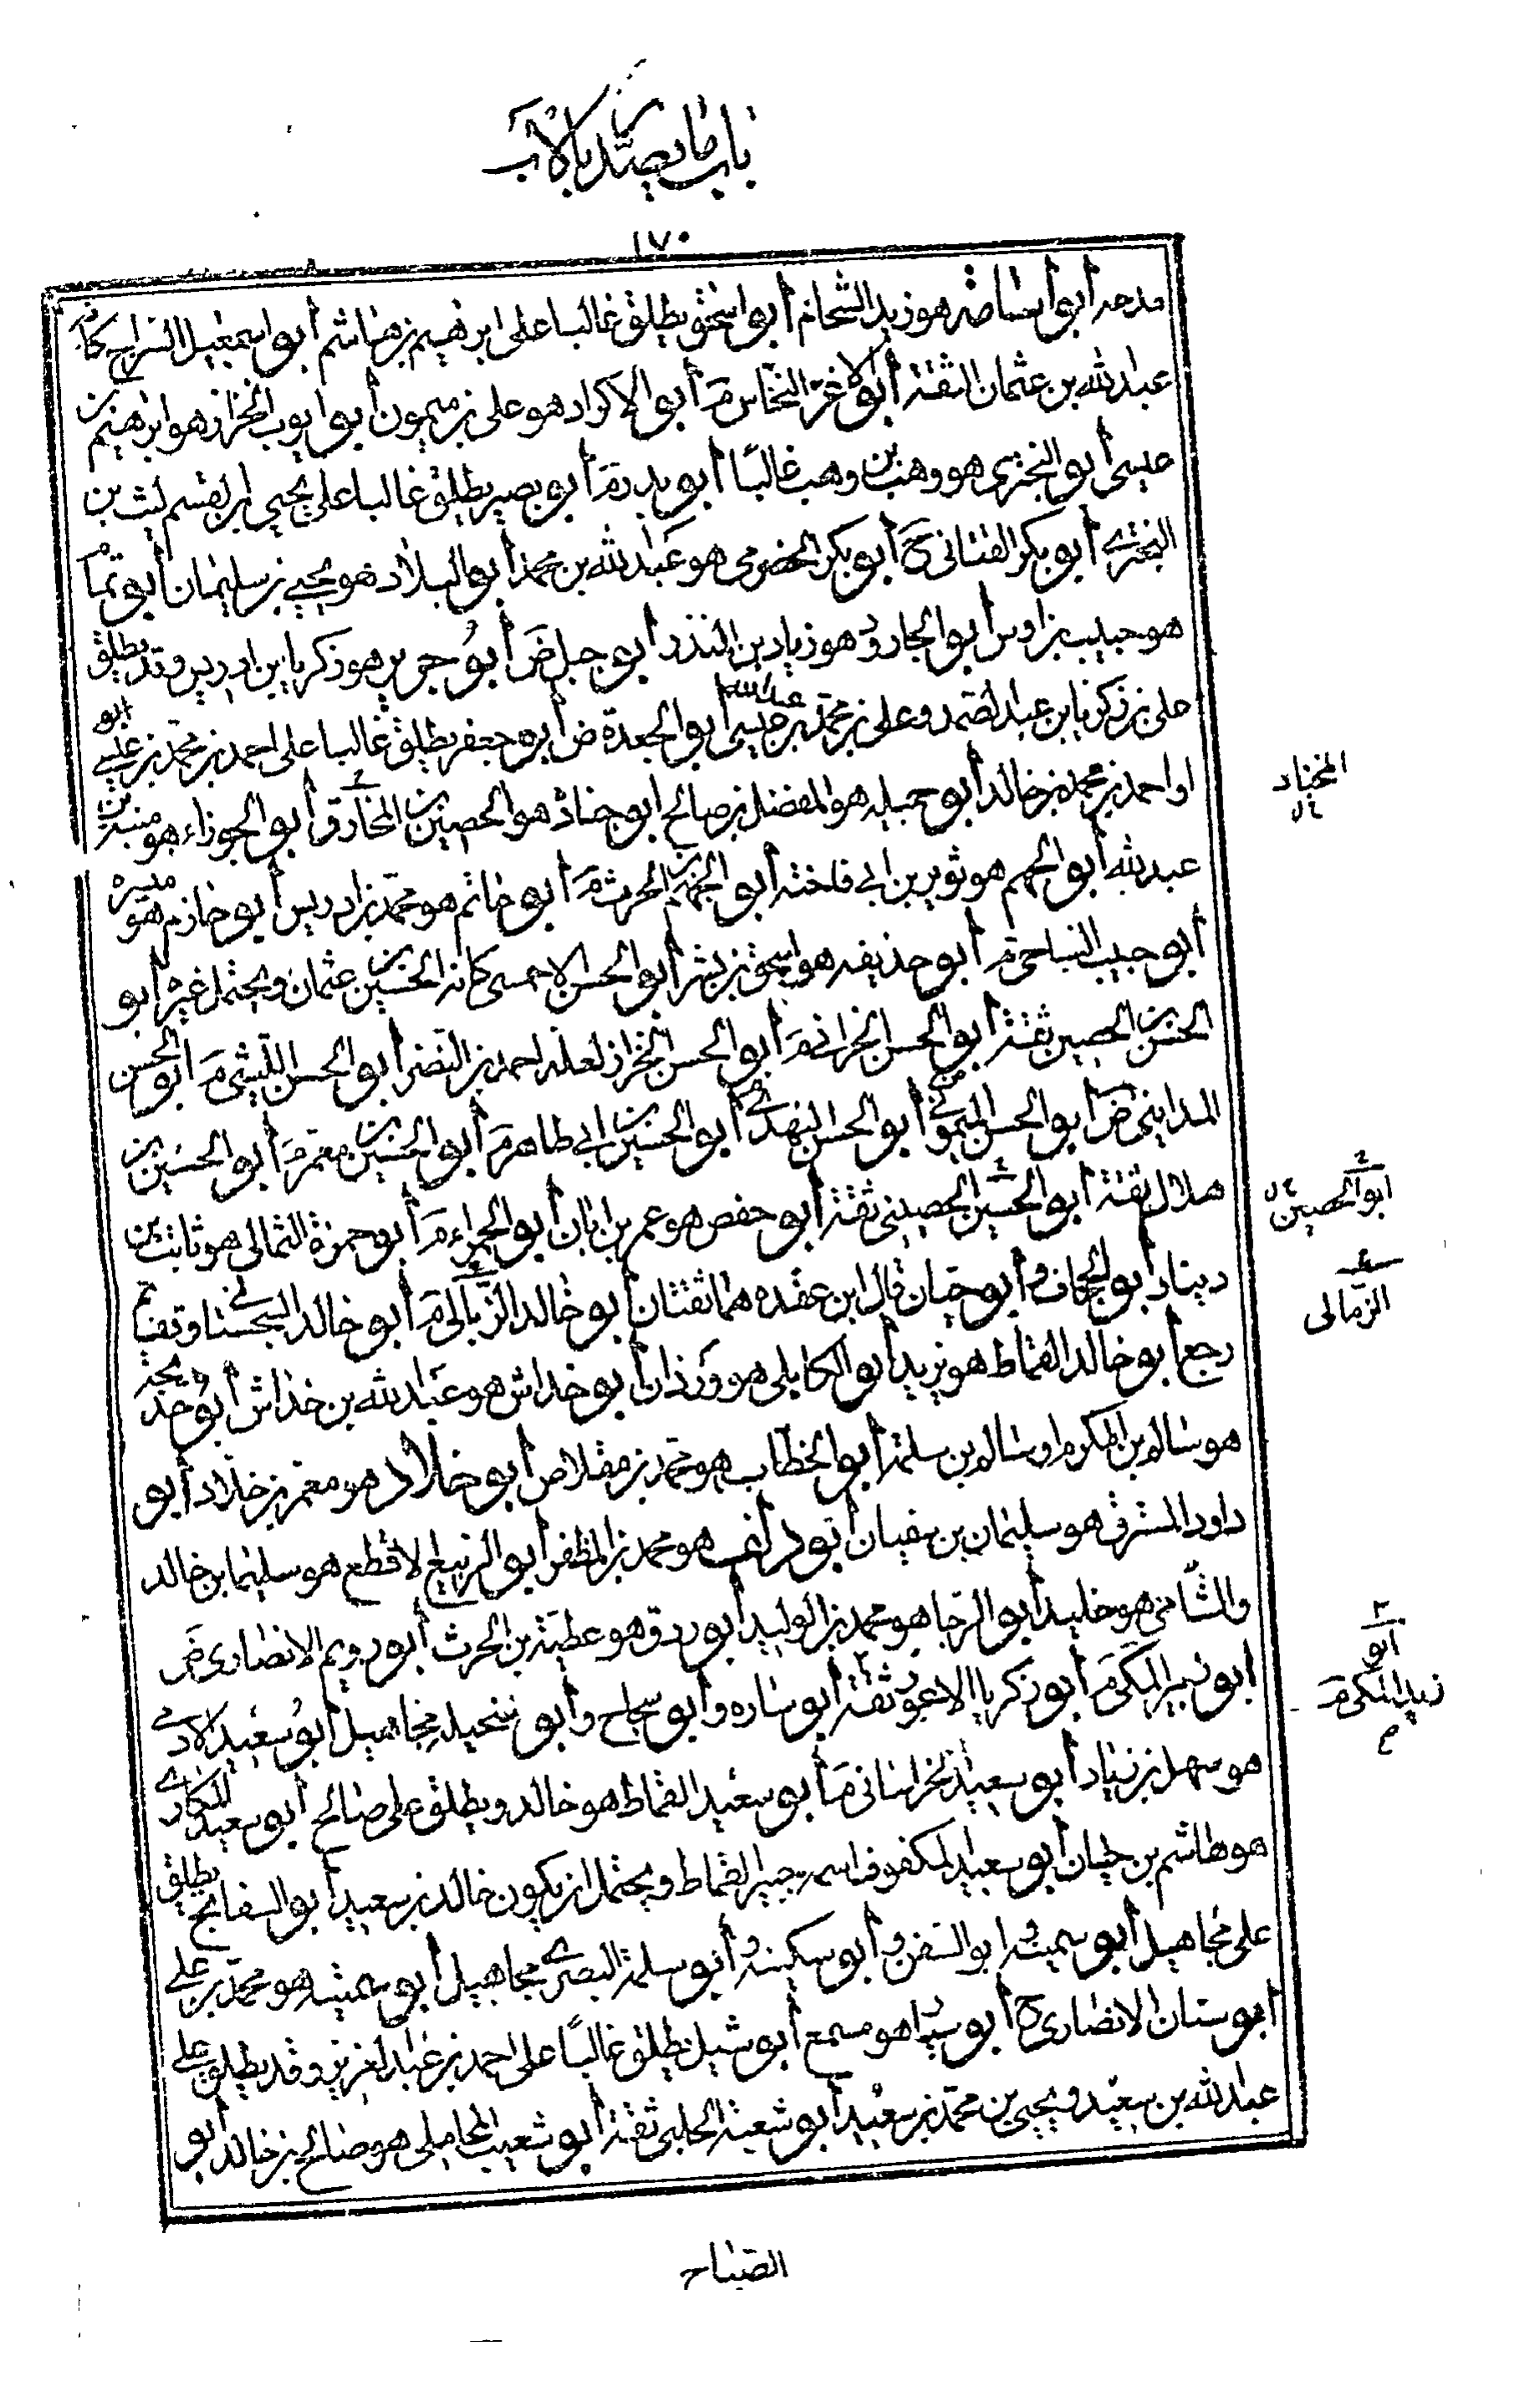 باب ما يصدر بالاب
١٧٠
مدحه أبو أسامه هو زيد الشحام أبو اسحق يطلق غالبا على ابرهيم بن هاشم أبو اسمعيل السراج كأنه
عبد الله بن عثمان الثقة أبو الاغر النخاس م أبو الاكراد هو على بن ميمون أبو ايوب الخزاز هو ابرهيم بن
عيسى أبو البخترى هو وهب بن وهب غالبًا أبو بدر م أبو بصير يطلق غالبا على يحيى ابن القسم ليث بن
البخترى أبو بكر القنانى ح أبو بكر الحضرمى هو عبد الله بن محمد أبو البلاد هو يحيى بن سليمان أبو تمام
هو حبيب بن اوس أبو الجارود هو زياد بن المنذر أبو جبل ض أبو جرير هو زكريا بن ادريس وقد يطلق
على بن زكريا بن عبد الصمد وعلى بن محمد بن عيسى أبو الجعدة ض أبو جعفر يطلق غالبا على احمد بن محمد بن عيسى
او احمد بن محمد بن خالد أبو جميله هو المفضل بن صالح أبو جناد هو الحصين بن المخارق أبو الجوزاء هو منبه بن
عبد الله أبو الجهم هو ثوير بن ابى فاخته أبو الجهم بن الحرث م أبو حاتم هو محمد بن ادريس أبو حازم هو ميسره
أبو حبيب النباحى م أبو حذيفه هو اسحق بن بشر أبو الحسن الاحمسى كانه الحسين بن عثمان ويحتمل غيره أبو
الحسن بن الحصين ثقة أبو الحسن الخراز لعله احمد بن النضر أبو الحسن الليثى م أبو الحسن
المداينى ض أبو الحسن الميمونى أبو الحسن النهدى أبو الحسين بن ابى طاهر م أبو الحسين بن معمر م أبو الحسين بن
هلال ثقة أبو الحسين الحصينى ثقة أبو حفص هو عمر بن ابان أبو الحمراء م أبو حمزة الثمالى هو ثابت بن
دينار أبو الجحاف و أبو حيان قال ابن عقده هما ثقتان أبو خالد الزبالى م أبو خالد السجستانى وقف ثم
رجع أبو خالد القماط هو يزيد أبو الكابلى هو وردان أبو خداش هو عبد الله بن خداش أبو خديجة
هو سالم بن المكرم او سالم بن سلمة أبو الخطاب هو محمد بن مقلاص أبو خلاد هو معمر بن خلاد أبو
داود المسترق هو سليمان بن سفيان أبو دلف هو محمد بن المظفر أبو الربيع الاقطع هو سليمان بن خالد
والشامى هو خليد أبو الرجا هو محمد بن الوليد أبو روق هو عطية بن الحرث أبو رويم الانصارى ض
أبو زبير المكى م أبو زكريا الاعور ثقة أبو ساره و أبو سجاح و أبو سخيله مجاهيل أبو سعيد الادمى
هو سهل بن زياد أبو سعيد الخراسانى م أبو سعيد القماط هو خالد ويطلق على صالح أبو سعيد المكارى
هو هاشم بن حيان أبو سعيد المكفوف اسمه جبير القماط ويحتمل ان يكون خالد بن سعيد أبو السفاتج يطلق
على مجاهيل أبو سميه و ابو السفن و أبو سكينه و أبو سلمة البصرى مجاهيل أبو سمينه هو محمد بن على
أبو سنان الانصارى ح أبو سيار هو مسمع أبو شبل يطلق غالبًا على احمد بن عبد العزيز وقد يطلق على
عبد الله بن سعيد ويحيى بن محمد بن سعيد أبو شعبة الحلبى ثقة أبو شعيب المحاملى هو صالح بن خالد أبو
المخناد
ابو الحصين
الزمالى
ابو
زبيد المكى م
الصباح